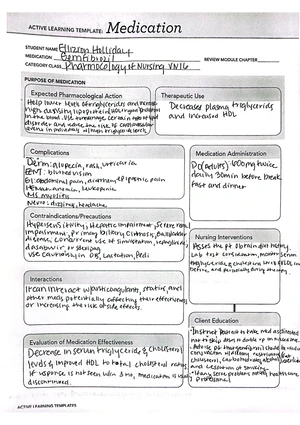 ACTIVE LEARNING TEMPLATE: Medication
STUDENT NAME Ellison Holliday
MEDICATION Gemfibrozil REVIEW MODULE CHAPTER
CATEGORY CLASS Pharmacology of Nursing VN16
PURPOSE OF MEDICATION
Expected Pharmacological Action
Help lower levels of triglycerides and
in the blood. Use
disorder and reduce the risk of cardiovascular
events in individuals with high triglyceride levels.
Therapeutic Use
Decreases plasma triglycerides
and increased HDL
Complications
Derm: alopecia, rash, urticaria
EENT: blurred vision
GI: abdominal pain, diarrhea, epigastric pain
Hemat: anemia, leukopenia
MS: myositis
Neuro: dizziness, headache
Medication Administration
PO (adults) 600mg twice
daily 30min before break
fast and dinner
Contraindications/Precautions
Hypersensitivity, Hepatic impairment, Severe renal
impairment, primary biliary cirrhosis, Gallbladder
disease, concurrent use of simvastatin, repaglinide,
dasabuvir or selexipag
Use cautiously in OB, Lactation, Pedi
Nursing Interventions
Assess the pt Obtain diet history
Lab test consideration, monitor serum
triglyceride
before, and periodically during therapy.
Interactions
It can interact w/ anticoagulants, statins and
other meds potentially affecting their effectiveness
or increasing the risk of side effects.
Client Education
Instruct Patient to take med as directed
not to skip doses or double up on missed
Advise pt that medication should be used in
conjunction w/ dietary restrictions (fat,
cholesterol, carbohydrates, alcohol), exercise
and cessation of smoking.
Professional
Evaluation of Medication Effectiveness
Decrease in serum triglyceride & cholesterol
levels & improved HDL to total cholesterol ratio
If response is not seen w/in 3 mo, medication is usually
discontinued.
ACTIVE LEARNING TEMPLATES